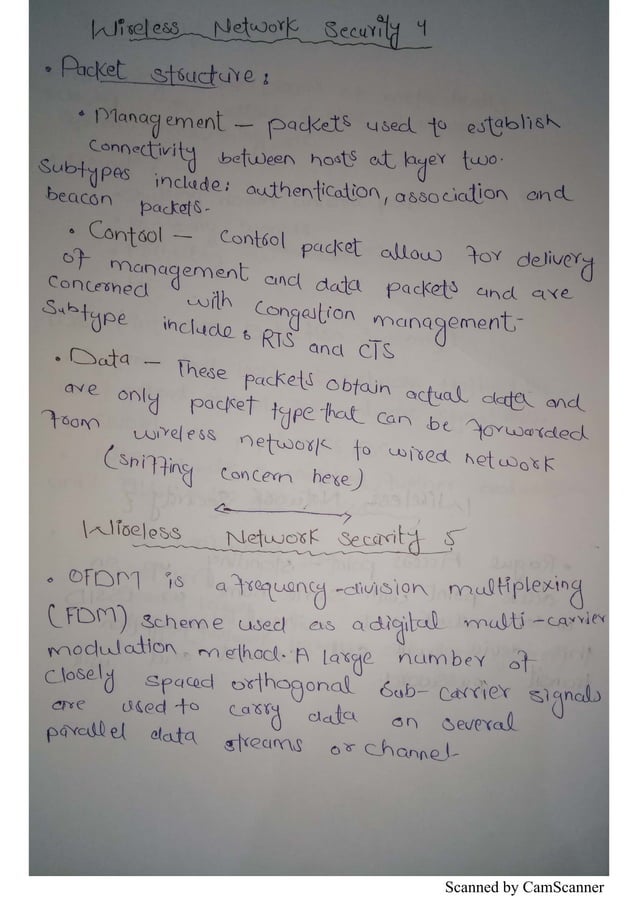 Wireless Network Security 4
• Packet structure :
• Management — packets used to establish
connectivity between hosts at layer two.
Subtypes include: authentication, association and
beacon packets.
• Control — Control packet allow for delivery
of management and data packets and are
concerned with congestion management.
Subtype include : RTS and CTS
• Data — These packets obtain actual data and
are only packet type that can be forwarded
from wireless network to wired network
(sniffing concern here)
Wireless Network Security 5
• OFDM is a frequency-division multiplexing
(FDM) scheme used as a digital multi-carrier
modulation method. A large number of
closely spaced orthogonal sub-carrier signals
are used to carry data on several
parallel data streams or channel.
Scanned by CamScanner